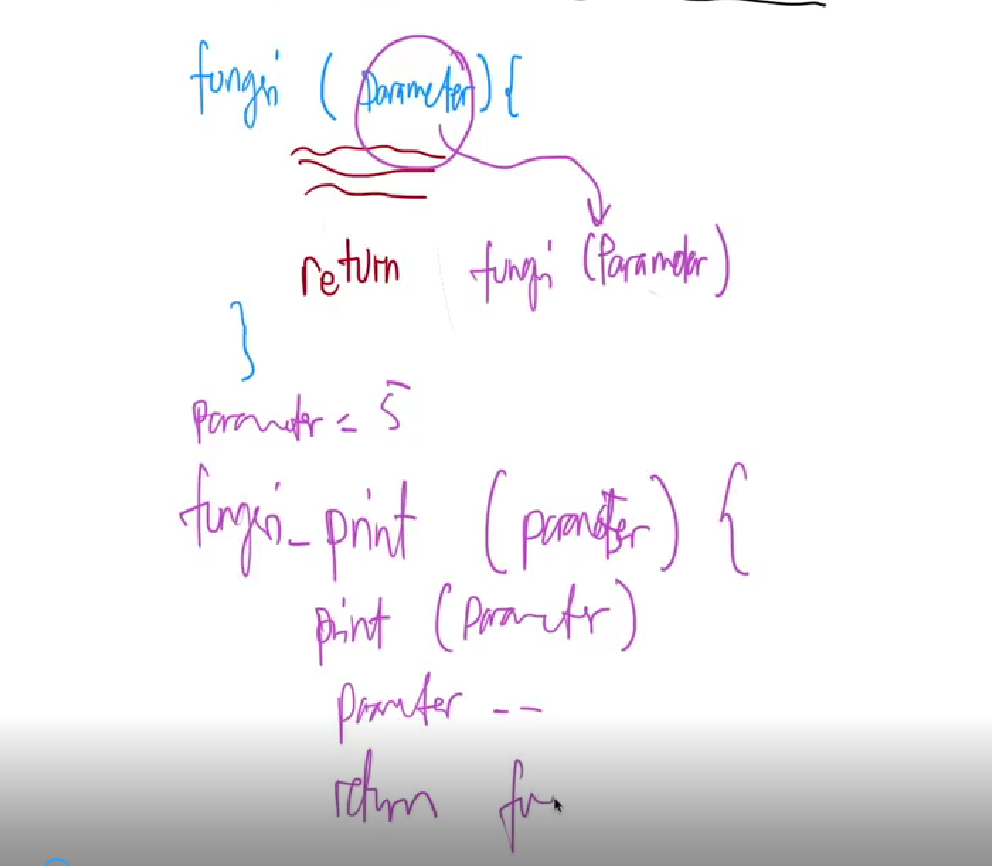 fungsi ( Parameter ) {
return fungsi (Parameter)
}
Parameter = 5
fungsi_print (parameter) {
print (Parameter)
Parameter --
return fu